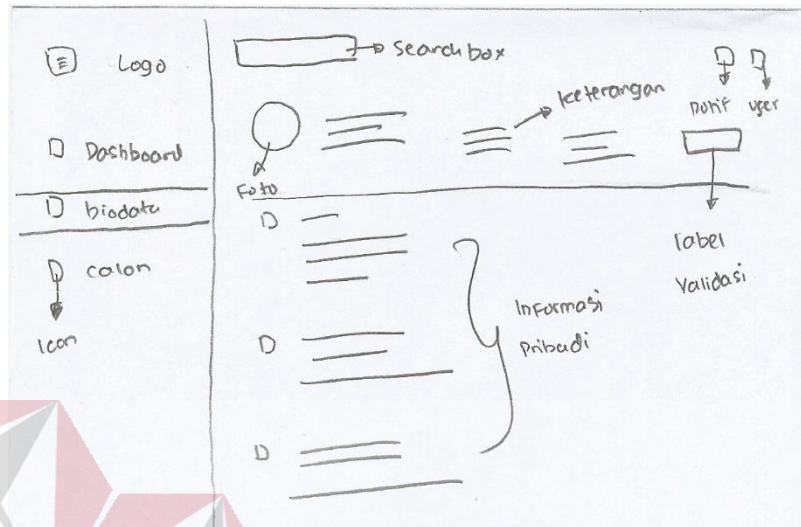 Logo
Dashboard
biodata
calon
Icon
Search box
keterangan
notif
user
Foto
label
Validasi
Informasi
Pribadi